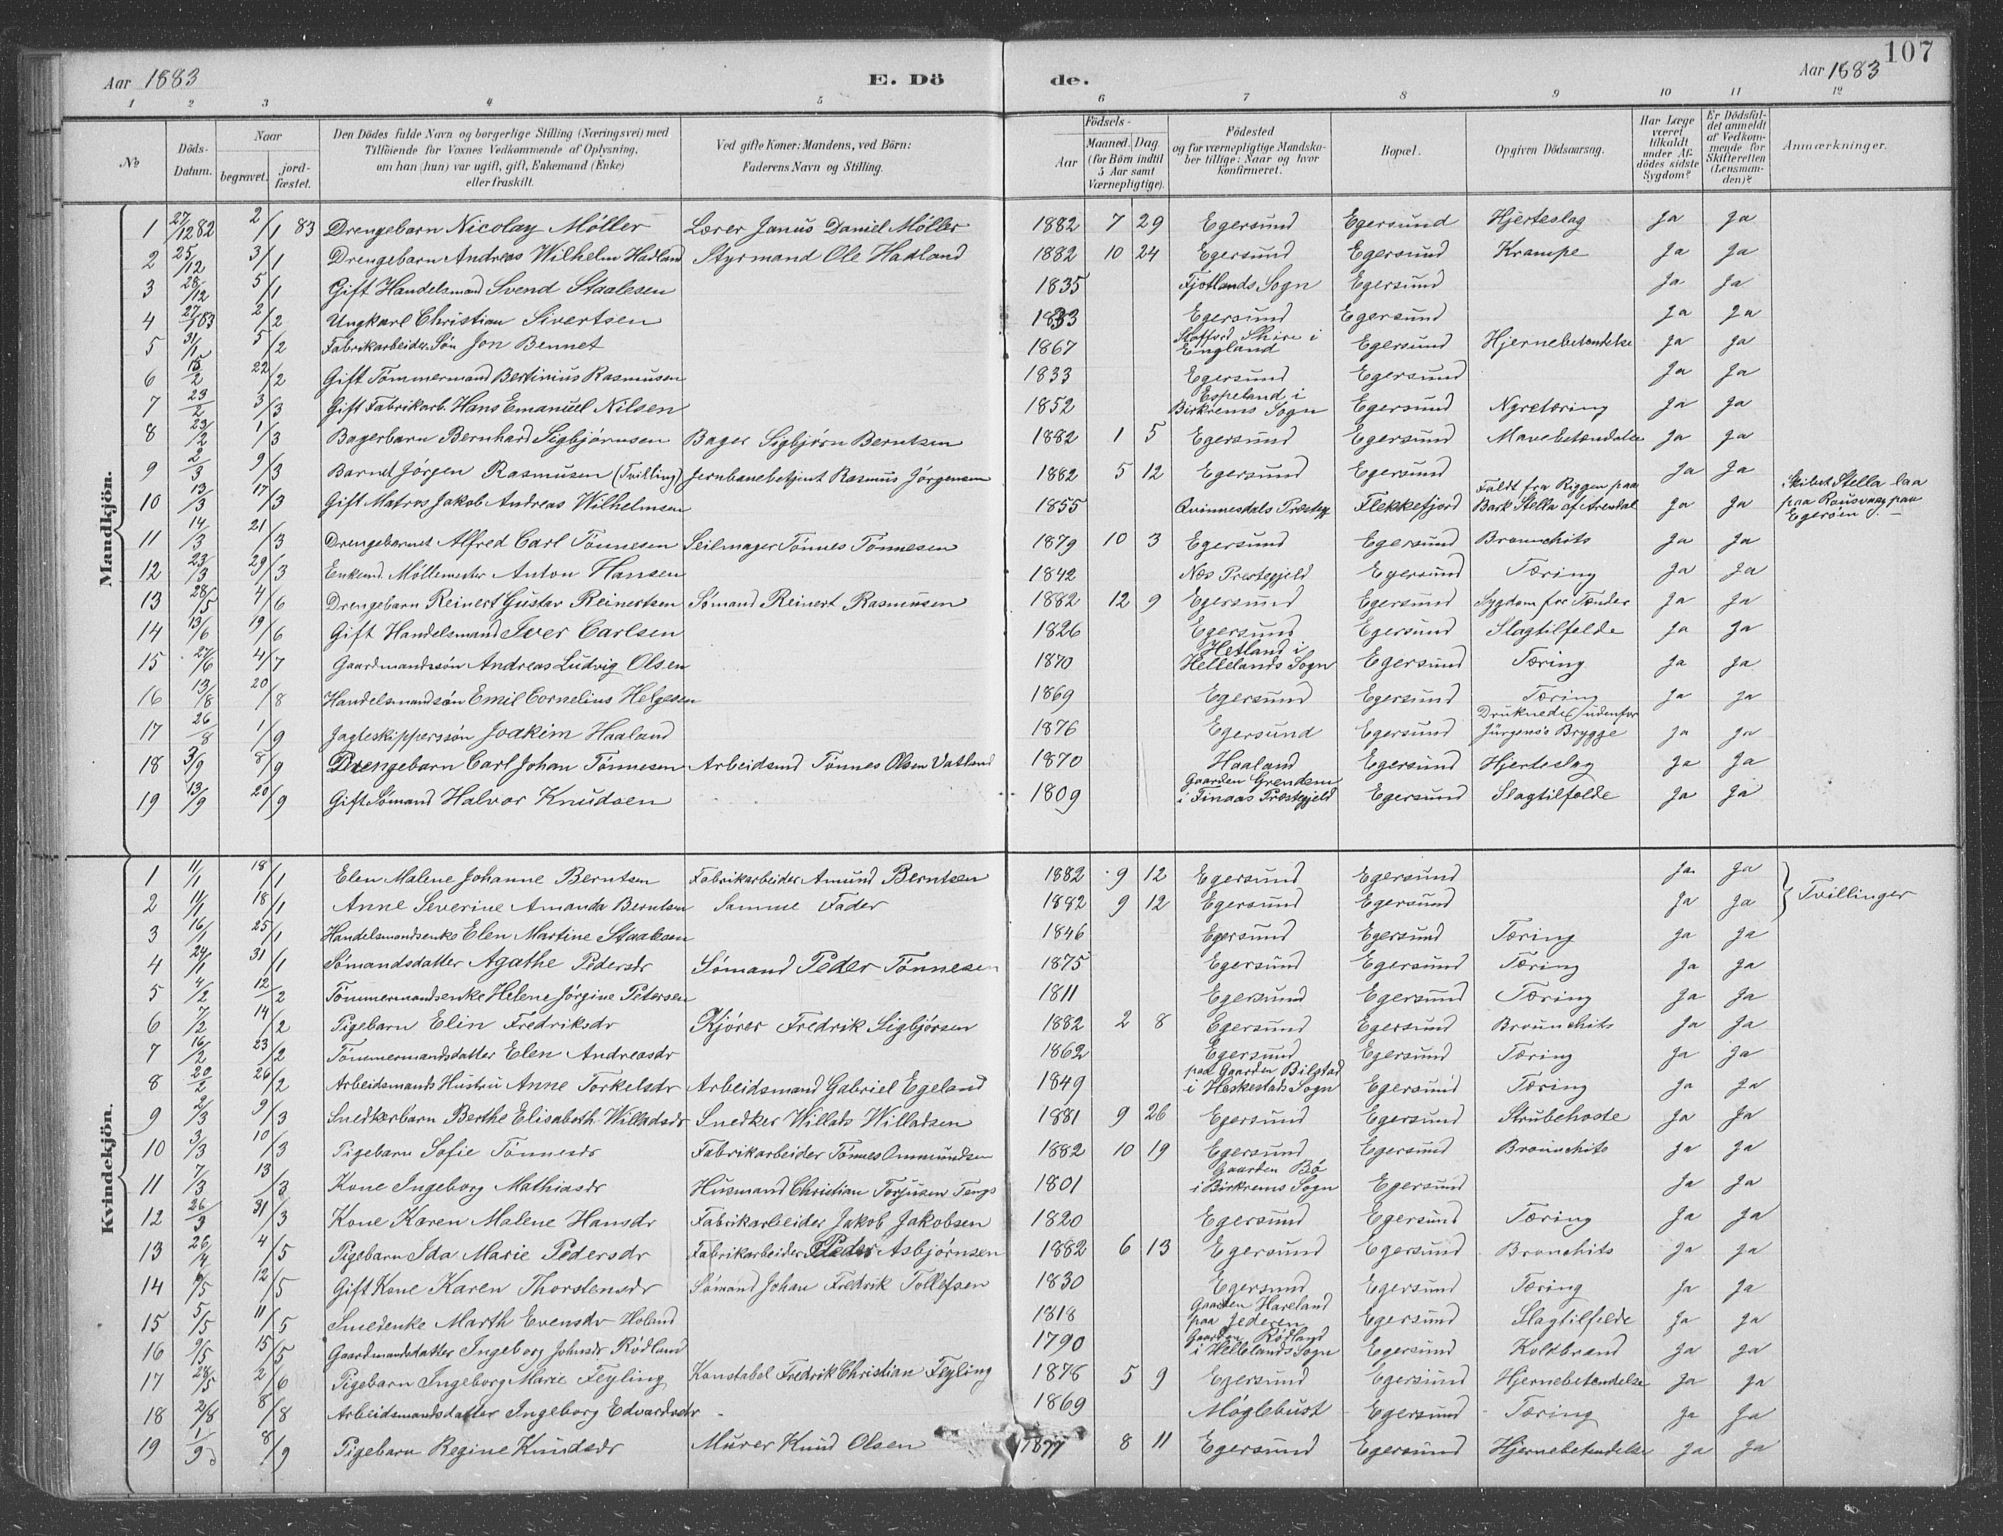 107
Aar 1883 E. Dö de. Aar 1883
1 2 3 4 5 6 7 8 9 10 11 12
No
Döds-Datum.
Naar begravet. jordfæstet.
Den Dödes fulde Navn og borgerlige Stilling (Næringsvei) med Tilföiende for Voxnes Vedkommende af Oplysning, om han (hun) var ugift, gift, Enkemand (Enke) eller fraskilt.
Ved gifte Koner: Mandens, ved Börn: Faderens Navn og Stilling.
Födsels- Aar Maaned. Dag. (for Börn indtil 5 Aar samt Værnepligtige).
Födested og for værnepligtige Mandskaber tillige: Naar og hvor konfirmeret.
Bopæl.
Opgiven Dödsaarsag.
Har Læge været tilkaldt under Afdödes sidste Sygdom?
Er Dödsfaldet anmeldt af Vedkommende for Skifteretten (Lensmanden)?
Anmærkninger.
Mandkjön.
1 27/12 82 2/1 83 Drengebarn Nicolay Møller Lærer Janus Daniel Møller 1882 7 29 Egersund Egersund Hjerteslag Ja Ja
2 25/12 3/1 Drengebarn Andreas Wilhelm Hadland Styrmand Ole Hadland 1882 10 24 Egersund Egersund Krampe Ja Ja
3 28/12 5/1 Gift Handelsmand Svend Staalesen 1835 Fjotlands Sogn Egersund Ja Ja
4 27/1 83 2/2 Ungkarl Christian Sivertsen 1833 Egersund Egersund Ja Ja
5 31/1 5/2 Fabrikarbeider Søn Jon Bennet 1867 Stafford Shire i England Egersund Hjernebetændelse Ja Ja
6 15/2 22/2 Gift Tømmermand Bertinius Rasmusen 1833 Egersund Egersund Ja Ja
7 23/2 3/3 Gift Fabrikarb. Hans Emanuel Nilsen 1852 Espeland i Birkrems Sogn Egersund Nyretæring Ja Ja
8 23/2 1/3 Bagerbarn Bernhard Sigbjørnsen Bager Sigbjørn Berntsen 1882 1 5 Egersund Egersund Mavebetændelse Ja Ja
9 2/3 9/3 Barnet Jørgen Rasmusen (Tvilling) Jernbanebetjent Rasmus Jørgensen 1882 5 12 Egersund Egersund Ja Ja
10 13/3 17/3 Gift Matros Jakob Andreas Wilhelmsen 1855 Qvinnesdals Prestegj. Flekkefjord Faldt fra Riggen paa Bark Stella af Arendal Ja Ja Skibet Stella laa paa Rausvaag paa Egerøen
11 14/3 21/3 Drengebarnet Alfred Carl Tønnesen Seilmager Tønnes Tønnesen 1879 10 3 Egersund Egersund Bronchits Ja Ja
12 23/3 29/3 Enkemd. Møllemester Anton Hansen 1842 Næs Prestegjeld Egersund Tæring Ja Ja
13 28/5 4/6 Drengebarn Reinert Gustav Reinertsen Sømand Reinert Rasmusen 1882 12 9 Egersund Egersund Sygdom for Tænder Ja Ja
14 13/6 19/6 Gift Handelsmand Iver Carlsen 1826 Egersund Egersund Slagtilfelde Ja Ja
15 27/6 4/7 Gaardmandssøn Andreas Ludvig Olsen 1870 Hetland i Hellelands Sogn Egersund Tæring Ja Ja
16 13/8 20/8 Handelsmandsøn Emil Cornelius Helgesen 1869 Egersund Egersund Tæring Ja Ja
17 26/8 1/9 Jagteskipperssøn Joakim Haaland 1876 Egersund Egersund Druknede udenfor Jürgens's Brygge Ja Ja
18 3/9 8/9 Drengebarn Carl Johan Tønnesen Arbeidsmd Tønnes Olsen Vatland 1870 Haaland Egersund Hjerteslag Ja Ja
19 13/9 20/9 Gift Sømand Halvor Knudsen 1809 Gaarden Grendem i Finaas Prestegjeld Egersund Slagtilfelde Ja Ja
Kvindekjön.
1 11/1 18/1 Elen Malene Johanne Berntsen Fabrikarbeider Amund Berntsen 1882 9 12 Egersund Egersund Ja Ja
2 11/1 18/1 Anne Severine Amanda Berntsen Samme Fader 1882 9 12 Egersund Egersund Ja Ja Tvillinger
3 16/1 25/1 Handelsmandsenke Elen Martine Staalesen 1846 Egersund Egersund Tæring Ja Ja
4 24/1 31/1 Sømandsdatter Agathe Pedersdr Sømand Peder Tønnesen 1875 Egersund Egersund Tæring Ja Ja
5 4/2 12/2 Tømmermandsenke Helene Jørgine Petersen 1811 Egersund Egersund Tæring Ja Ja
6 7/2 14/2 Pigebarn Elin Fredriksdr Kjører Fredrik Sigbjørsen 1882 2 8 Egersund Egersund Brounchits Ja Ja
7 16/2 23/2 Tømmermandsdatter Elen Andreasdr 1862 Egersund Egersund Tæring Ja Ja
8 20/2 26/2 Arbeidsmands Hustru Anne Torkelsdr Arbeidsmand Gabriel Egeland 1849 paa Gaarden Bilstad i Heskestads Sogn Egersund Tæring Ja Ja
9 2/3 9/3 Snedkerbarn Berthe Elisabeth Willadsdr Snedker Willads Willadsen 1881 9 26 Egersund Egersund Strubehoste Ja Ja
10 3/3 10/3 Pigebarn Sofie Tønnesdr Fabrikarbeider Tønnes Ommundsen 1882 10 19 Egersund Egersund Brounchits Ja Ja
11 7/3 13/3 Kone Ingeborg Mathiasdr Husmand Christian Torjusen Tengs 1801 Gaarden Bø i Birkrems Sogn Egersund Ja Ja
12 26/3 31/3 Kone Karen Malene Hansdr Fabrikarbeider Jakob Jakobsen 1820 Egersund Egersund Tæring Ja Ja
13 26/4 4/5 Pigebarn Ida Marie Pedersdr Fabrikarbeider Peder Asbjørnsen 1882 6 13 Egersund Egersund Bronchits Ja Ja
14 /5 12/5 Gift Kone Karen Thorstensdr Sømand Johan Fredrik Tollefsen 1830 Egersund Egersund Tæring Ja Ja
15 5/5 11/5 Smedenke Marth Evensdr Holand 1818 Gaarden Hareland paa Jederen Egersund Slagtilfelde Ja Ja
16 9/5 15/5 Gaardmandsdatter Ingeborg Johnsdr Rødland 1790 Gaarden Rødland i Hellelands Sogn Egersund Koldbrand Ja Ja
17 28/5 2/6 Pigebarn Ingeborg Marie Feyling Konstabel Fredrik Christian Feyling 1878 5 9 Egersund Egersund Hjernebetændelse Ja Ja
18 2/8 8/8 Arbeidsmandsdatter Ingeborg Edvardsdr 1869 Møglebust Egersund Tæring Ja Ja
19 1/9 8/9 Pigebarn Regine Knudsdr Murer Knud Olsen 1877 8 11 Egersund Egersund Hjernebetændelse Ja Ja